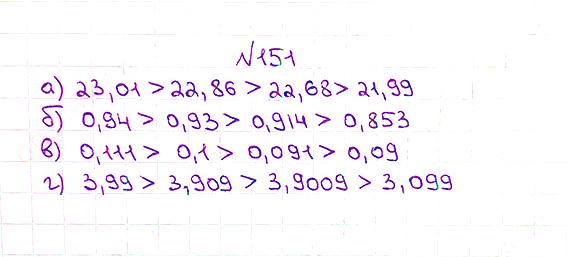 №151
а) 23,01 > 22,86 > 22,68 > 21,99
б) 0,94 > 0,93 > 0,914 > 0,853
в) 0,111 > 0,1 > 0,091 > 0,09
г) 3,99 > 3,909 > 3,9009 > 3,099